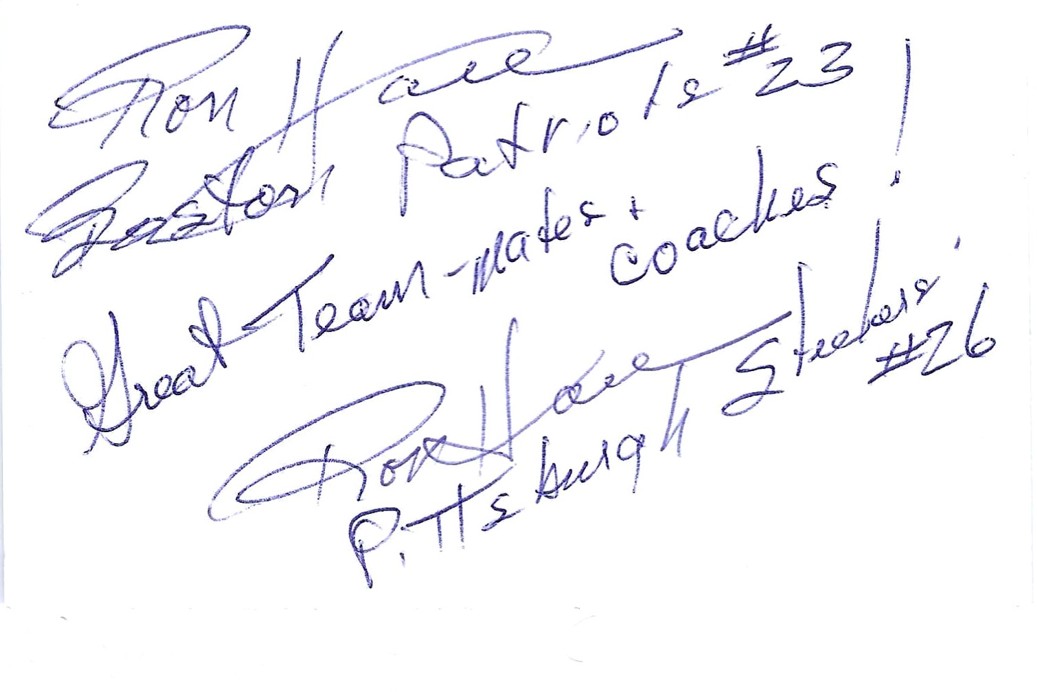 Ron Hall
Boston Patriots #23
Great Team-mates +
coaches!
Ron Hall
Pittsburgh Steelers
#26